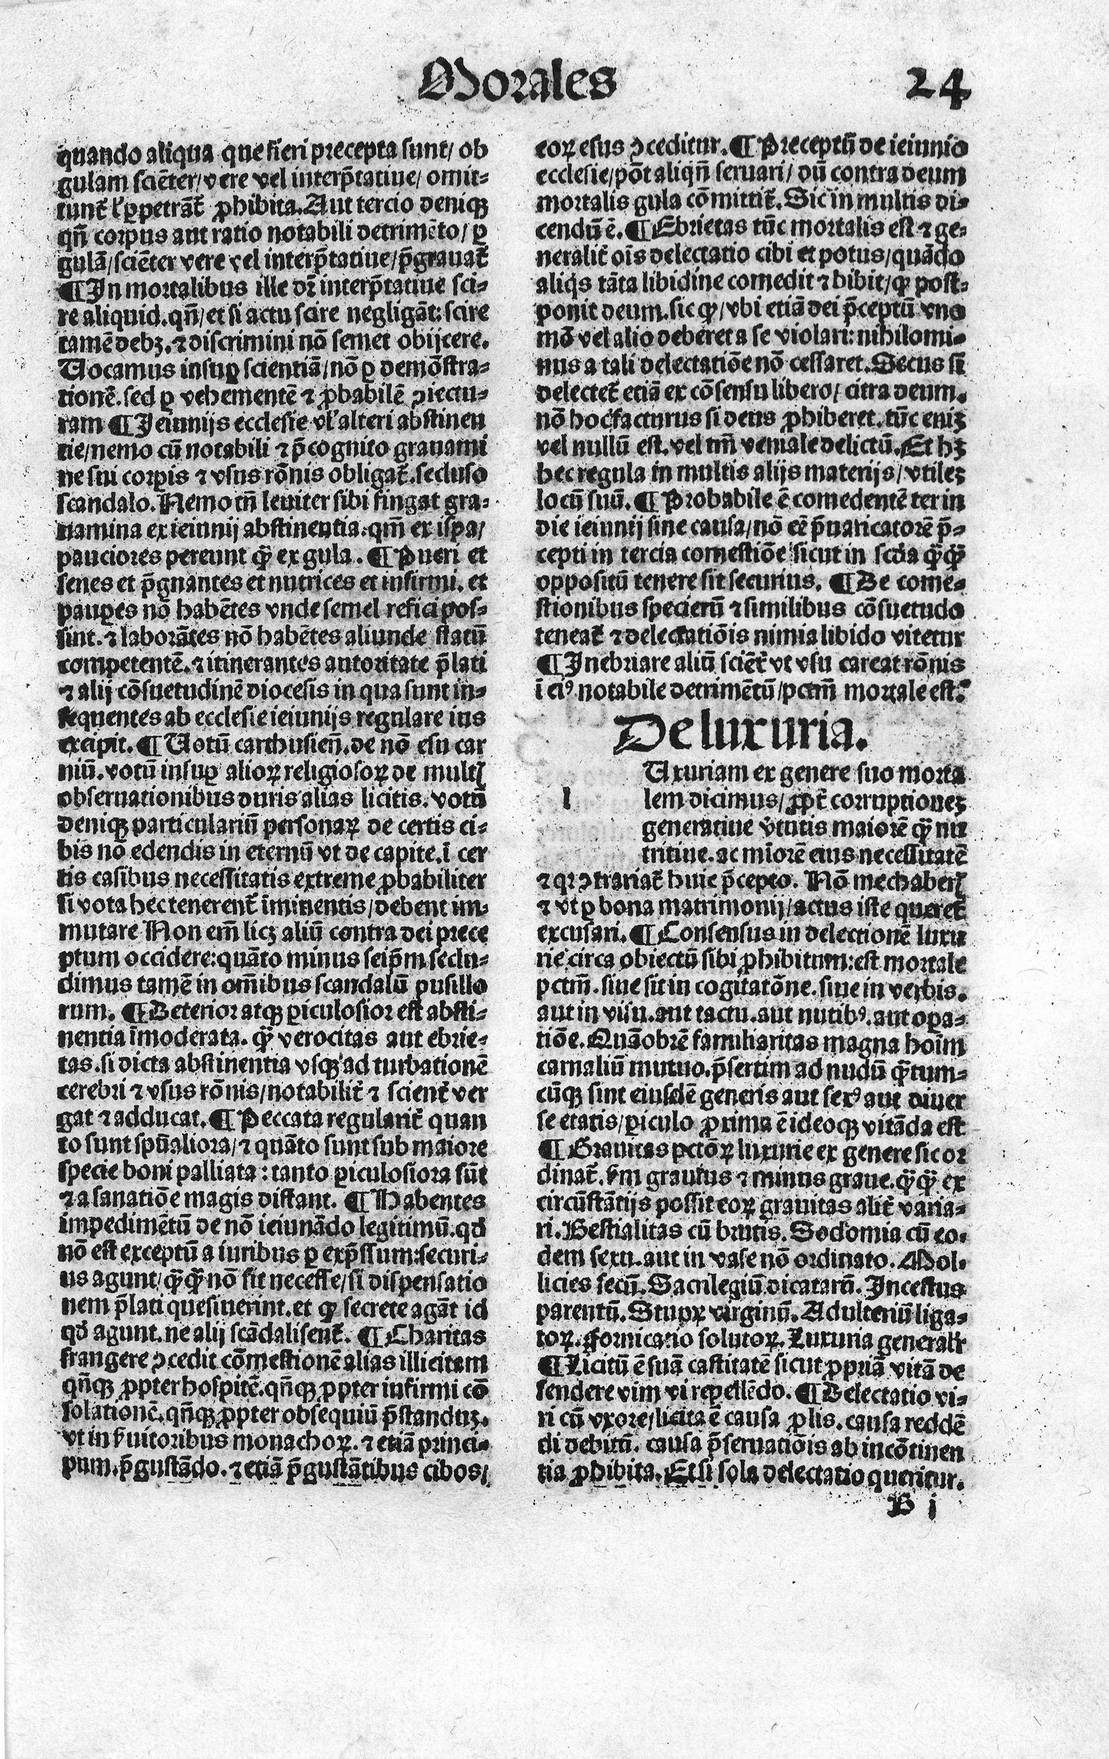 Morales
24
quando aliqua que fieri precepta sunt/ ob
gulam sciẽter/vere vel interp̃tatiue/ omit-
tunt̃ l'ꝑpetrãt̃ ꝓhibita. Aut tercio deniqꝫ
qñ corpus aut ratio notabili detrimẽto/ ꝑ
gulã/sciẽter vere vel interp̃tatiue/p̃grauat̃
¶In mortalibus ille dr̃ interp̃tatiue sci-
re aliquid. qñ/et si actu scire negligãt: scire
tamẽ debꝫ. ⁊ discrimini nõ semet obijcere.
Uocamus insuꝑ scientiã/nõ ꝑ demõstra-
tionẽ. sed ꝑ vehementẽ ⁊ ꝓbabilẽ ꝯiectu-
ram ¶Ieiunijs ecclesie vl' alteri abstinen
tie/nemo cũ notabili ⁊ p̃cognito grauami
ne sui corpis ⁊ vsus rõnis obligat̃. secluso
scandalo. Nemo tñ leuiter sibi fingat gra-
uamina ex ieiunij abstinentia. qm̃ ex ispa/
pauciores pereunt q̃ ex gula. ¶Pueri et
senes et p̃gnantes et nutrices et infirmi. et
pauꝑes nõ habẽtes vnde semel refici pos-
sint. ⁊ laborãtes nõ habẽtes aliunde statũ
competentẽ. ⁊ itinerantes autoritate p̃lati
⁊ alij cõsuetudinẽ diocesis in qua sunt in-
sequentes ab ecclesie ieiunijs regulare ius
excipit. ¶Uotũ carthusieñ. de nõ esu car
niũ. votũ insuꝑ alioꝝ religiosoꝝ de mult
obseruationibus duris alias licitis. votũ
deniqꝫ particulariũ personaꝝ de certis ci-
bis nõ edendis in eternũ vt de capite. ĩ cer
tis casibus necessitatis extreme ꝓbabiliter
si vota hec tenerent̃ iminentis/debent im-
mutare Non em̃ licꝫ aliũ contra dei prece
ptum occidere: quãto minus seip̃m. seclu-
dimus tamẽ in om̃ibus scandalũ pusillo
rum. ¶Deterior atqꝫ ꝑiculosior est absti-
nentia ĩmoderata. q̃ verocitas aut ebrie-
tas. si dicta abstinentia vsqꝫ ad turbationẽ
cerebri ⁊ vsus rõnis/notabilit̃ ⁊ scient̃ ver
gat ⁊ adducat. ¶Peccata regularit̃ quan
to sunt spũaliora/⁊ quãto sunt sub maiore
specie boni palliata: tanto ꝑiculosiora sũt
⁊ a sanatiõe magis distant. ¶Habentes
impedimẽtũ de nõ ieiunãdo legitimũ. qd̃
nõ est exceptũ a iuribus ꝑ exp̃ssum: securi-
us agunt/q̃q̃ nõ sit necesse/si dispensatio
nem p̃lati quesiuerint. et qꝫ secrete agãt id
qd̃ agunt. ne alij scãdalisent̃. ¶Charitas
frangere ꝯcedit cõmestionẽ alias illicitam
qñqꝫ ꝓpter hospitẽ. qñqꝫ ꝓpter infirmi cõ
solationẽ. qñqꝫ ꝓpter obsequiũ p̃standuꝫ.
vt in s̃uitoribus monachoꝝ. ⁊ etiã princi-
pum. p̃gustãdo. ⁊ etiã p̃gustãtibus cibos/
eoꝝ esus ꝯceditur. ¶Preceptũ de ieiunio
ecclesie/põt aliqñ seruari/ dũ contra deum
mortalis gula cõmittit̃. Sic in multis di-
cendũ ẽ. ¶Ebrietas tũc mortalis est ⁊ ge-
neralit̃ ois delectatio cibi et potus/quãdo
aliq̃s tãta libidine comedit ⁊ bibit/qꝫ post-
ponit deum. sic qꝫ/vbi etiã dei p̃ceptũ vno
mõ vel alio deberet a se violari: nihilomi-
nus a tali delectatiõe nõ cessaret. Secus si
delectet̃ etiã ex cõsensu libero/ citra deum.
nõ hoc facturus si deus ꝓhiberet. tũc eniꝫ
vel nullũ est. vel tm̃ veniale delictũ. Et hꝫ
hec regula in multis alijs materijs/vtileꝫ
locũ suũ. ¶Probabile ẽ comedentẽ ter in
die ieiunij sine causa/nõ eẽ p̃uaricatorẽ p̃-
cepti in tercia comestiõe sicut in scd̃a q̃q̃
oppositũ tenere sit securius. ¶De come-
stionibus specierũ ⁊ similibus cõsuetudo
teneat̃ ⁊ delectatiõis nimia libido vitetur
¶Inebriare aliũ scient̃ vt vsu careat rõnis
ĩ eiꝰ notabile detrimẽtũ/pctm̃ mortale est.
De luxuria.
l
Uxuriam ex genere suo morta
lem dicimus/ꝓpt̃ corruptioneꝫ
generatiue v̓tutis maiorẽ q̃ nu
tritiue. ac mĩorẽ eius necessitatẽ
⁊ qꝛ ꝯtrariat̃ huic p̃cepto. Nõ mechaber
⁊ vt ꝑ bona matrimonij/actus iste queret̃
excusari. ¶Consensus in delectionẽ luxu
rie circa obiectũ sibi ꝓhibitum: est mortale
pctm̃. siue sit in cogitatõne. siue in verbis.
aut in visu. aut tactu. aut nutibꝰ. aut oꝑa-
tiõe. Quãobrẽ familiaritas magna hoĩm
carnaliũ mutuo. p̃sertim ad nudũ q̃tum-
cũqꝫ sint eiusdẽ generis aut sexꝰ aut diuer
se etatis/ꝑiculo ꝓxima ẽ ideoqꝫ vitãda est
¶Grauitas pctõꝝ luxurie ex genere sic or
dinat̃. s̃m grauius ⁊ minus graue. q̃q̃ ex
circũstãtijs possit eoꝝ grauitas alit̃ varia-
ri. Bestialitas cũ brutis. Sodomia cũ eo-
dem sexu. aut in vase nõ ordinato. Mol-
licies secũ. Sacrilegiũ dicatarũ. Incestus
parentũ. Stupꝝ virginũ. Adulteriũ liga-
toꝝ. Fornicatio solutoꝝ. Luxuria general'r
¶Licitũ ẽ suã castitatẽ sicut ꝓpriã vitã de
fendere vim vi repellẽdo. ¶Delectatio vi-
ri cũ vxore/licita ẽ causa ꝓlis. causa reddẽ
di debitũ. causa p̃seruatiõis ab incõtinen
tia ꝓhibita. Et si sola delectatio queritur.
B i